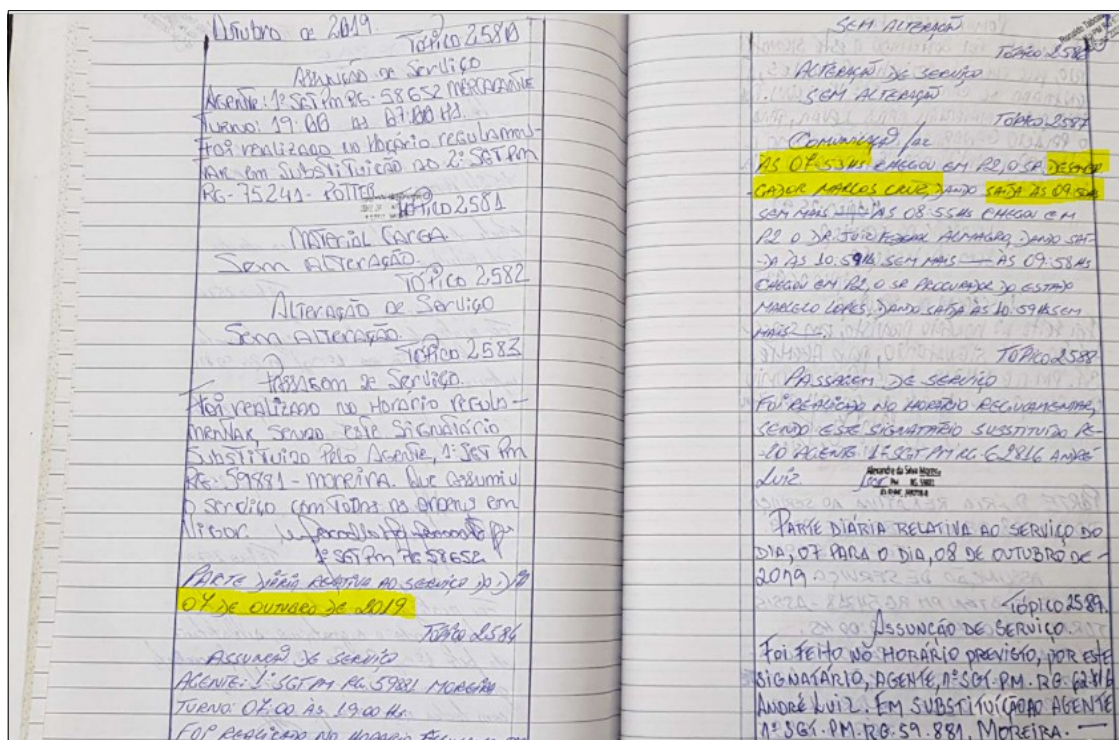 Outubro de 2019.
Tópico 2580
Assunção de Serviço
Agente: 1º SGT PM RG- 58652
Turno: 19:00 às 07:00 Hs.
Foi realizado no Horário regulamen-
tar em Substituição ao 2º SGT PM
RG- 75241- POTTER
Tópico 2581
Material Carga
Sem Alteração.
Tópico 2582
Alteração de Serviço
Sem Alteração.
Tópico 2583
Passagem de Serviço.
Foi realizado no Horário regula-
mentar, sendo este Signatário
Substituido Pelo Agente, 1º SGT PM
RG: 59881 - Moreira. Que assumiu
o serviço com Todas as ordens em
Vigor.
1º SGT PM RG 58652
PARTE DIÁRIA RELATIVA AO SERVIÇO DO DIA
07 DE OUTUBRO DE 2019.
TÓPICO 2584
ASSUNÇÃO DE SERVIÇO
AGENTE: 1º SGT PM RG. 59881 MOREIRA
TURNO: 07:00 ÀS 19:00 Hs.
FOI REALIZADO NO HORÁRIO
SEM ALTERAÇÃO
TÓPICO 2586
ALTERAÇÃO DE SERVIÇO
SEM ALTERAÇÃO
TÓPICO 2587
COMUNICAÇÃO faz
ÀS 07:53HS CHEGOU EM P2, O SR. DESEMBAR
GADOR MARCOS CRUZ, DANDO SAÍDA ÀS 09:50HS
SEM MAIS — ÀS 08:55HS CHEGOU EM
P2 O DR. JUIZ FEDERAL ALMAGRO, DANDO SAÍ-
DA ÀS 10:59HS SEM MAIS — ÀS 09:58HS
CHEGOU EM P2, O SR PROCURADOR DO ESTADO
MARCELO LOPES, DANDO SAÍDA ÀS 10:59HS SEM
MAIS
TÓPICO 2588
PASSAGEM DE SERVIÇO
FOI REALIZADO NO HORÁRIO REGULAMENTAR,
SENDO ESTE SIGNATÁRIO SUBSTITUÍDO PE-
LO AGENTE 1º SGT PM RG-62816 ANDRÉ
LUIZ.
Alexandre da Silva Moreira
PARTE DIÁRIA RELATIVA AO SERVIÇO DO
DIA, 07 PARA O DIA, 08 DE OUTUBRO DE-
2019
Tópico 2589.
ASSUNÇÃO DE SERVIÇO.
FOI FEITO NO HORÁRIO PREVISTO, POR ESTE
SIGNATÁRIO, AGENTE, 1º SGT. PM. RG. 62816
ANDRÉ LUIZ. EM SUBSTITUIÇÃO AO AGENTE
1º SGT. PM. RG. 59.881, MOREIRA. —